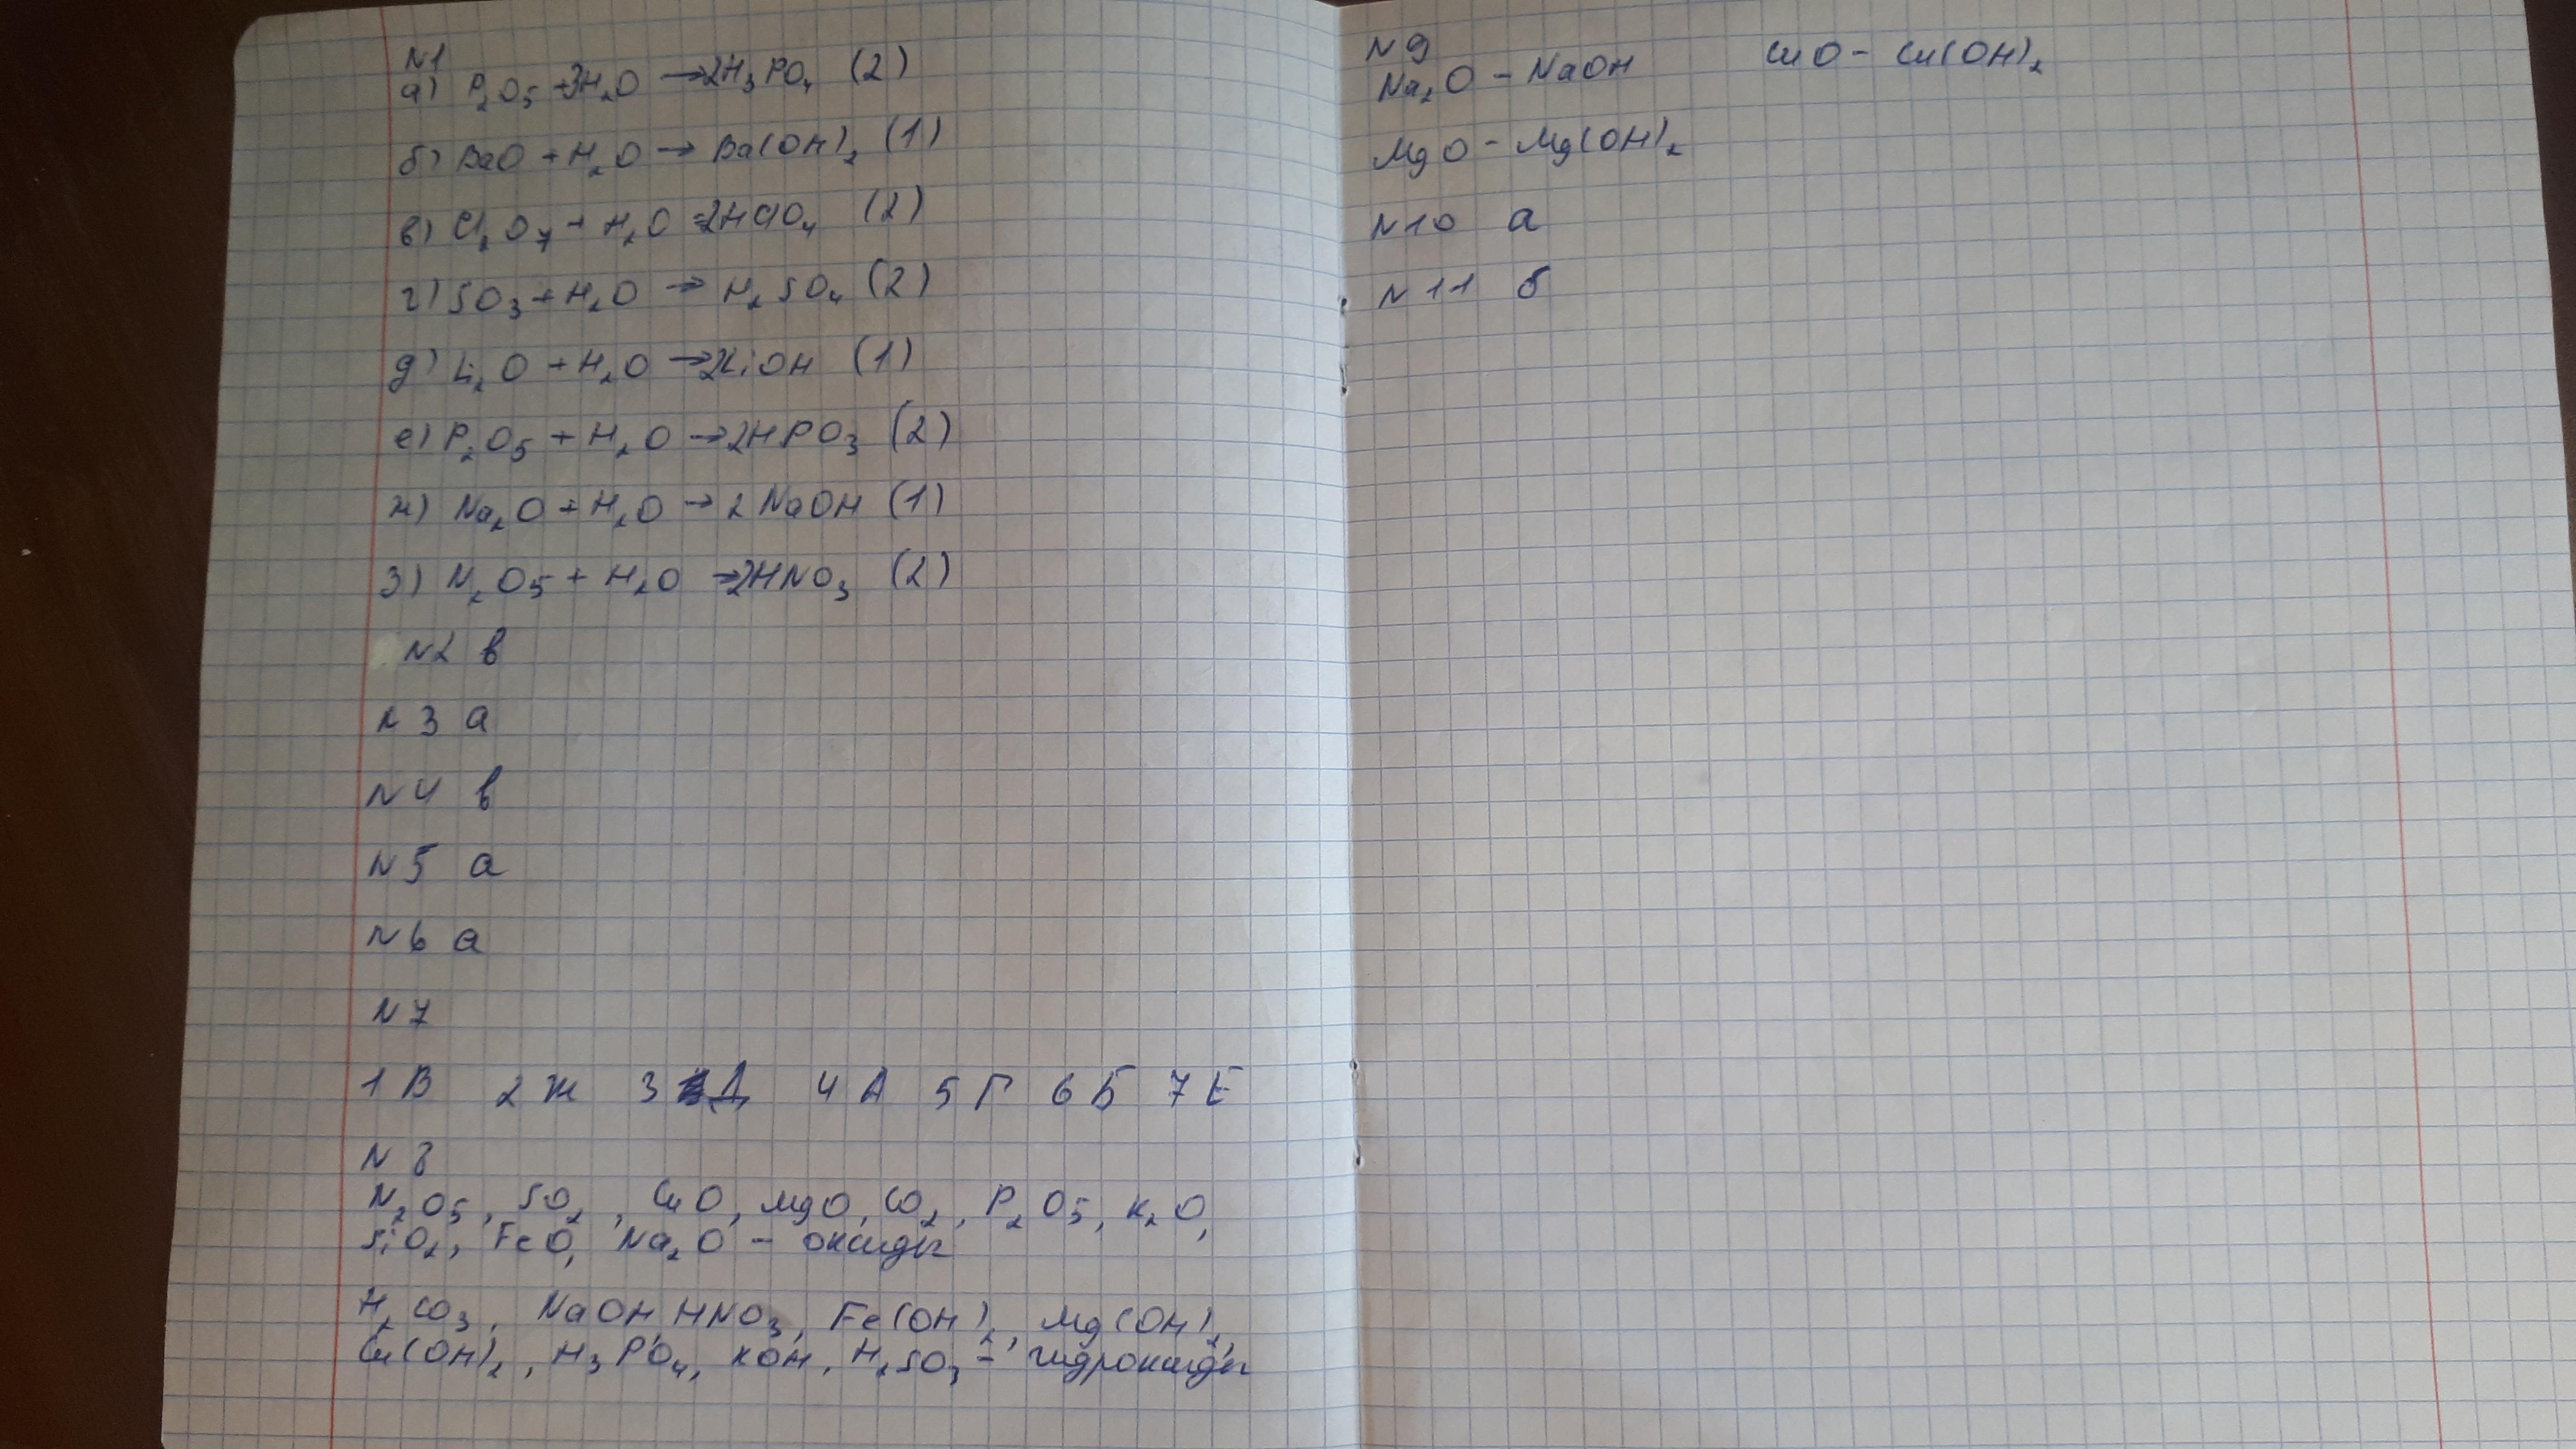 N1
а) P₂O₅ + 3H₂O → 2H₃PO₄ (2)
б) BaO + H₂O → Ba(OH)₂ (1)
в) Cl₂O₇ + H₂O = 2HClO₄ (2)
г) SO₃ + H₂O → H₂SO₄ (2)
д) Li₂O + H₂O → 2LiOH (1)
е) P₂O₅ + H₂O → 2HPO₃ (2)
ж) Na₂O + H₂O → 2NaOH (1)
з) N₂O₅ + H₂O → 2HNO₃ (2)
N2 в
N3 а
N4 в
N5 а
N6 а
N7
1 В 2 Ж 3 Д 4 А 5 Г 6 Б 7 Е
N8
N₂O₅, SO₂, CuO, MgO, CO₂, P₂O₅, K₂O,
SiO₂, FeO, Na₂O - оксиды
H₂CO₃, NaOH, HNO₃, Fe(OH)₂, Mg(OH)₂,
Cu(OH)₂, H₃PO₄, KOH, H₂SO₃ - гидроксиды
N9
Na₂O - NaOH CuO - Cu(OH)₂
MgO - Mg(OH)₂
N10 а
N11 б